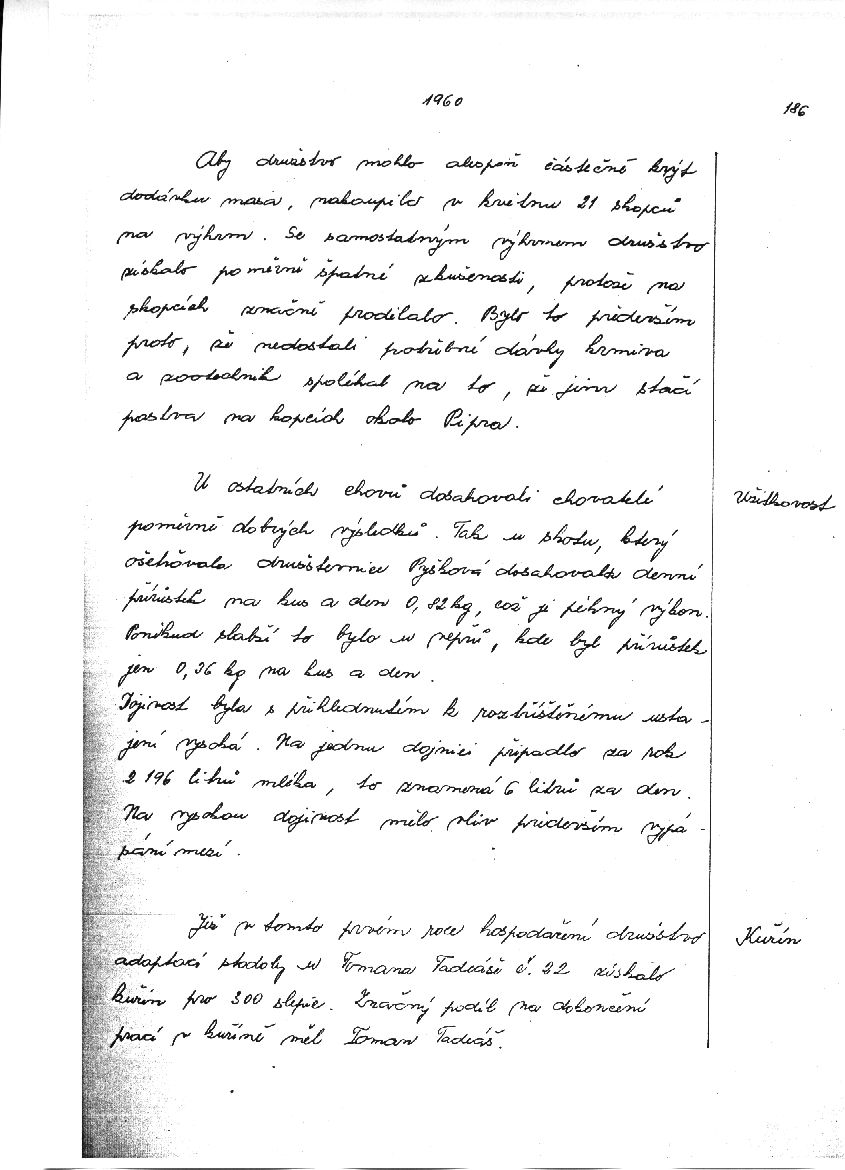 1960
186
Aby družstvo mohlo alespoň částečně krýt
dodávku masa, nakoupilo v květnu 21 skopců
na výkrm. Se samostatným výkrmem družstvo
získalo poměrně špatné zkušenosti, protože na
skopcích značně prodělalo. Bylo to především
proto, že nedostali potřebné dávky krmiva
a zootechnik spoléhal na to, že jim stačí
pastva na kopcích okolo Pipra.
U ostatních chovů dosahovali chovatelé
Užitkovost
poměrně dobrých výsledků. Tak u skotu, který
ošetřovala družstevnice Pyšková dosahovala denní
přírůstek na kus a den 0,82 kg, což je pěkný výkon.
Poněkud slabší to bylo u vepřů, kde byl přírůstek
jen 0,36 kg na kus a den.
Dojivost byla s přihlédnutém k roztříštěnému ustá-
jení vysoká. Na jednu dojnici připadlo za rok
2 196 litrů mléka, to znamená 6 litrů za den.
Na vysokou dojivost mělo vliv především vypá-
sání mezí.
Již v tomto prvém roce hospodaření družstvo
Kuřín
adaptací stodoly u Tomana Tadeáše č. 22 získalo
kuřín pro 300 slepic. Značný podíl na dokončení
prací v kuříně měl Toman Tadeáš.